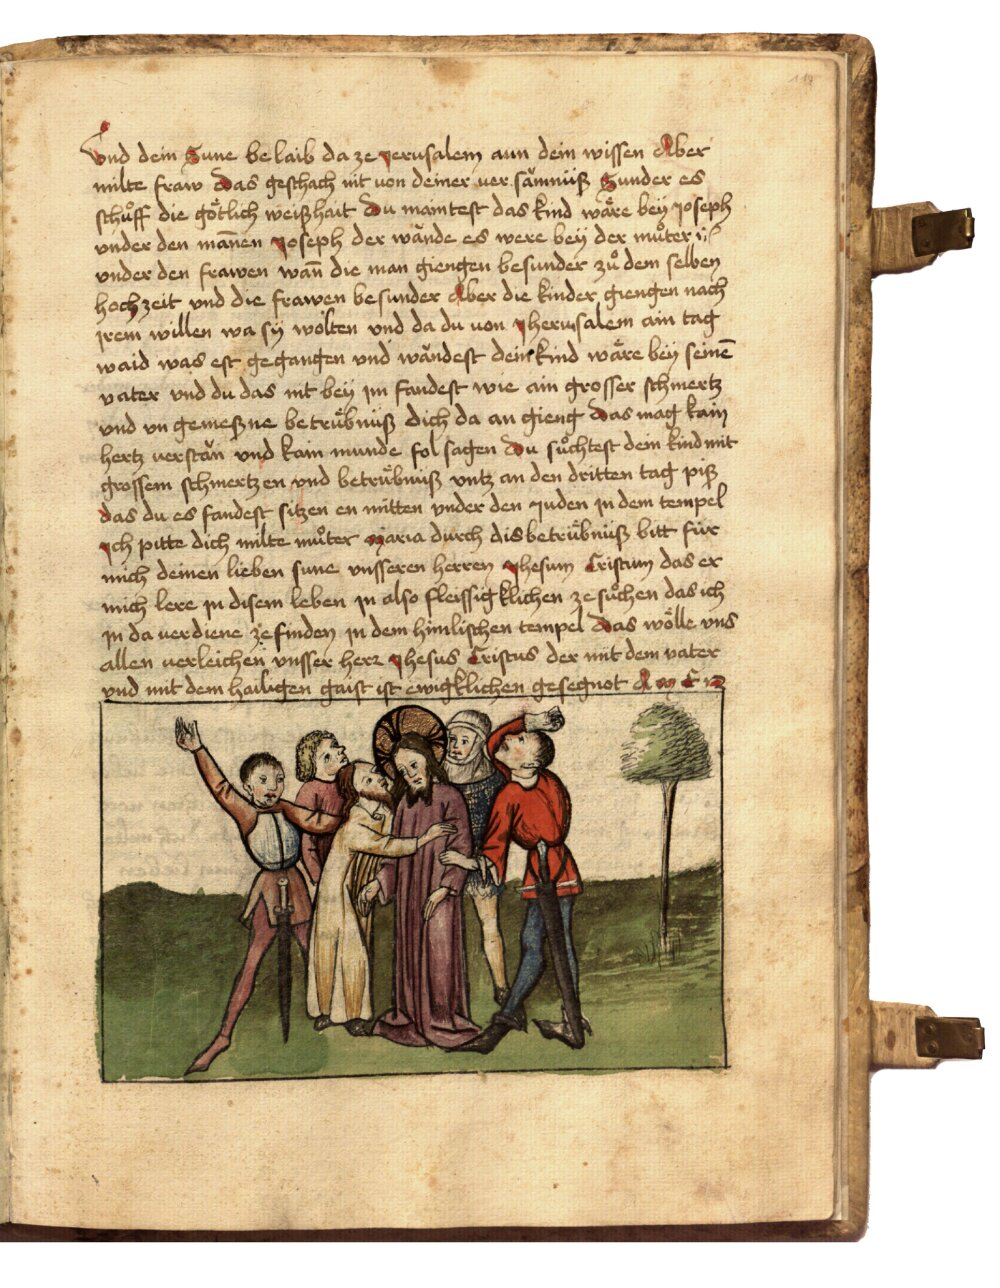 117
Vnd dein Sune belaib da ze Jerusalem aun dein wissen Aber
milte fraw Das geschach nit von deiner versämnüß Sunder es
schůff die götlich weißhait Du maintest das kind wäre bey Joseph
vnder den mannen Joseph der wände es were bey der můter
vnder den frawen wañ die man giengen besunder zů dem selben
hochzeit vnd die frawen besunder Aber die kinder giengen nach
jrem willen wa sy wolten vnd da du von Jherusalem ain tag
waid was est gegangen vnd wändest dein kind wäre bey seinē
vater vnd du das nit bey jm fandest wie ain grosser schmertz
vnd vn gemeßne betrübnüß dich da an gieng Das mag kain
hertz verstän vnd kain munde fol sagen Du sůchtest dein kind mit
grossem schmertzen vnd betrübnüß vntz an den dritten tag piß
das du es fandest sitzen en mitten vnder den Juden jn dem tempel
Ich pitte dich milte můter Maria durch dis betrübnüß bitt für
mich deinen lieben sune vnsseren herren Jhesum Cristum das er
mich lere jn disem leben jn also fleissigklichen ze sůchen das ich
jn da verdiene ze finden jn dem himlischen tempel Das wölle vns
allen verleichen vnsser herr Jhesus Cristus der mit dem vater
vnd mit dem hailigen gaist ist ewigklichen gesegnot AMEN